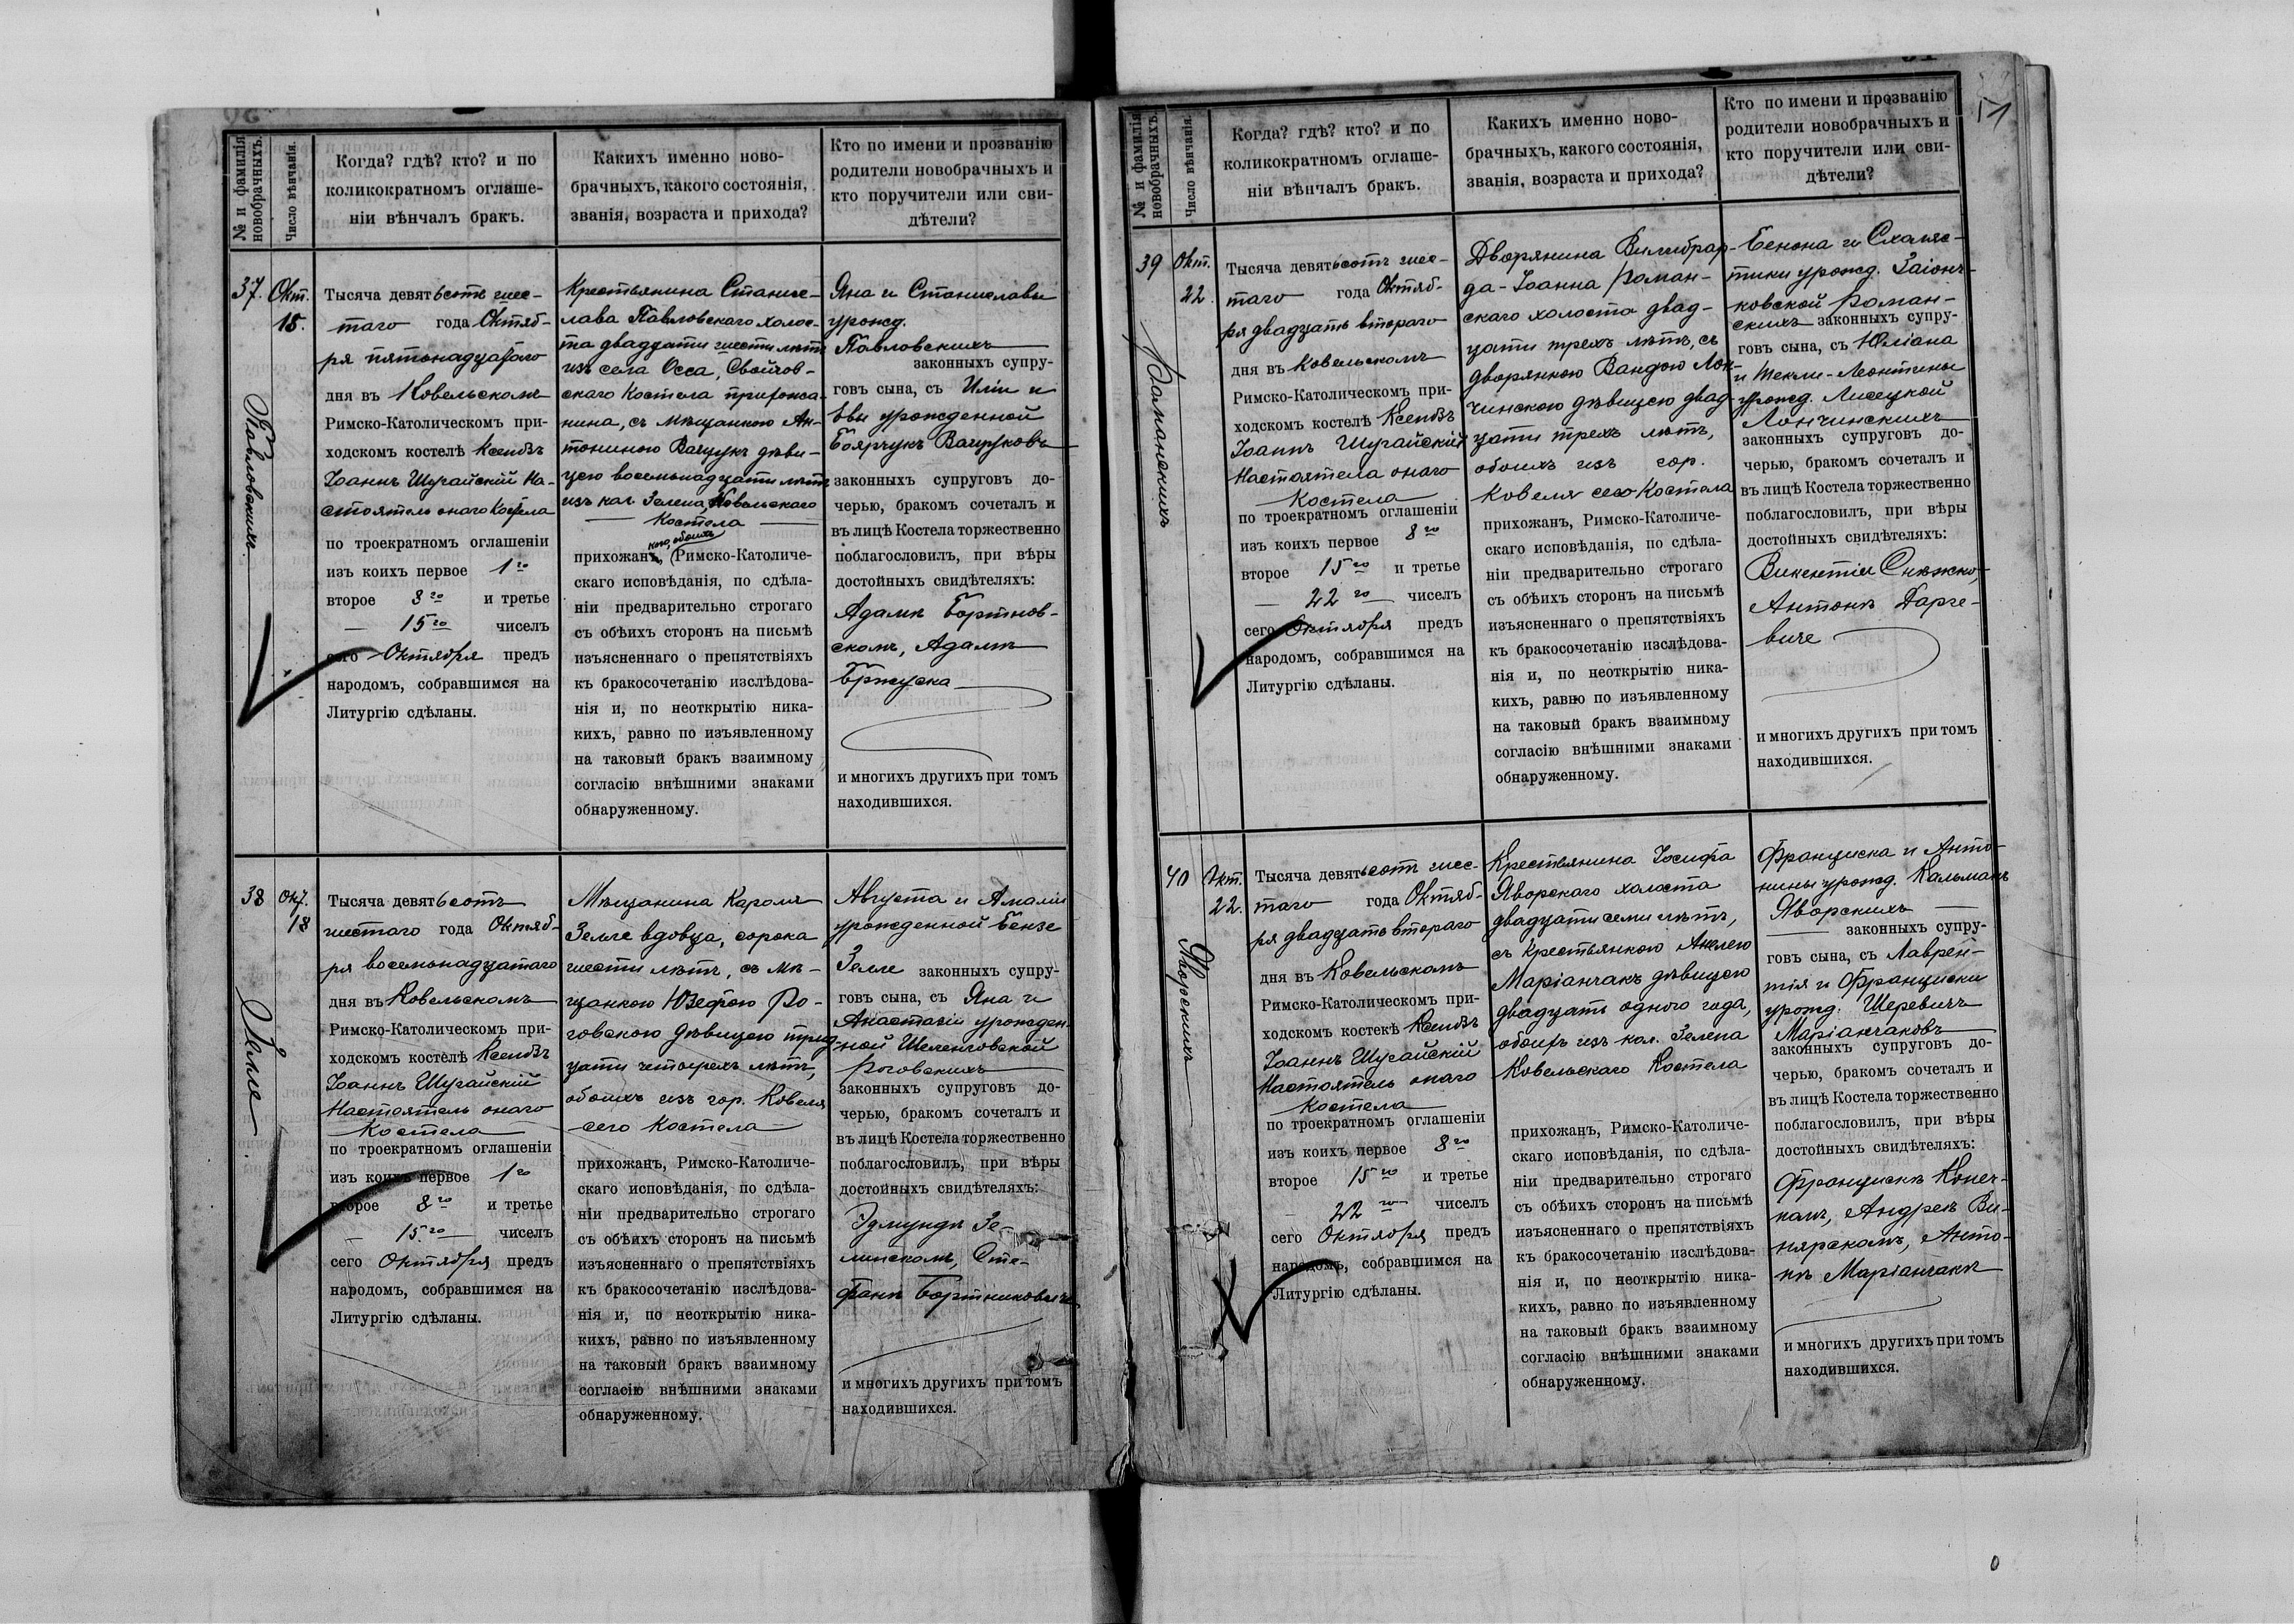 № и фамилія новобрачныхъ.
Число вѣнчанія.
Когда? гдѣ? кто? и по
коликократномъ оглаше-
ніи вѣнчалъ бракъ.
Какихъ именно ново-
брачныхъ, какого состоянія,
званія, возраста и прихода?
Кто по имени и прозванію
родители новобрачныхъ и
кто поручители или сви-
дѣтели?
37.
Окт.
15.
Павловскихъ
Тысяча девятьсотъ шес-
таго года Октяб-
ря пятонадцатого
дня въ Ковельскомъ
Римско-Католическомъ при-
ходскомъ костелѣ Ксендзъ
Іоаннъ Шугайскій На-
стоятель онаго Костела
по троекратномъ оглашеніи
изъ коихъ первое 1го
второе 8го и третье
15го чиселъ
сего Октября предъ
народомъ, собравшимся на
Литургію сдѣланы.
Крестьянина Станис-
лава Павловскаго холос-
та двадцати шести лѣтъ
изъ села Осса, Свойчов-
скаго Костела прихожа-
нина, съ мѣщанкою Ан-
тониною Вачрукъ дѣви-
цею восемьнадцати лѣтъ
изъ кол. Зелена, Ковельского
Костела
прихожан, Римско-Католиче-
скаго исповѣданія, по сдѣла-
ніи предварительно строгаго
съ обѣихъ сторонъ на письмѣ
изъясненнаго о препятствіяхъ
къ бракосочетанію изслѣдова-
нія и, по неоткрытію ника-
кихъ, равно по изъявленному
на таковый бракъ взаимному
согласію внѣшними знаками
обнаруженному.
Яна и Станиславы
урожд.
Павловскихъ
законныхъ супру-
говъ сына, съ Иліи и
Евы урожденной
Боярчукъ Вачруковъ
законныхъ супруговъ до-
черью, бракомъ сочеталъ и
въ лицѣ Костела торжественно
поблагословилъ, при вѣры
достойныхъ свидѣтеляхъ:
Адамѣ Бортнов-
скомъ, Адамѣ
Бржуска
и многихъ другихъ при томъ
находившихся.
38
Окт.
18
Зелле
Тысяча девятьсотъ
шестаго года Октяб-
ря восемьнадцатаго
дня въ Ковельскомъ
Римско-Католическомъ при-
ходскомъ костелѣ Ксендзъ
Іоаннъ Шугайскій
Настоятель онаго
Костела
по троекратномъ оглашеніи
изъ коихъ первое 1го
второе 8го и третье
15го чиселъ
сего Октября предъ
народомъ, собравшимся на
Литургію сдѣланы.
Мѣщанина Кароля
Зелле вдовца, сорока
шести лѣтъ, съ мѣ-
щанкою Юзефою Ро-
говскою дѣвицею трид-
цати четырехъ лѣтъ,
обоихъ изъ гор. Ковеля
сего Костела
прихожанъ, Римско-Католиче-
скаго исповѣданія, по сдѣла-
ніи предварительно строгаго
съ обѣихъ сторонъ на письмѣ
изъясненнаго о препятствіяхъ
къ бракосочетанію изслѣдова-
нія и, по неоткрытію ника-
кихъ, равно по изъявленному
на таковый бракъ взаимному
согласію внѣшними знаками
обнаруженному.
Августа и Амаліи
урожденной Бензе
Зелле законныхъ супру-
говъ сына, съ Яна и
Анастасіи урожден-
ной Шеленговской
Роговскихъ
законныхъ супруговъ до-
черью, бракомъ сочеталъ и
въ лицѣ Костела торжественно
поблагословилъ, при вѣры
достойныхъ свидѣтеляхъ:
Эдмундѣ Зе-
линскомъ, Сте-
фанѣ Бортниковичѣ
и многихъ другихъ при томъ
находившихся.
51
№ и фамилія новобрачныхъ.
Число вѣнчанія.
Когда? гдѣ? кто? и по
коликократномъ оглаше-
ніи вѣнчалъ бракъ.
Какихъ именно ново-
брачныхъ, какого состоянія,
званія, возраста и прихода?
Кто по имени и прозванію
родители новобрачныхъ и
кто поручители или сви-
дѣтели?
39
Окт.
22.
Романскихъ
Тысяча девятьсотъ шес-
таго года Октяб-
ря двадцать втораго
дня въ Ковельскомъ
Римско-Католическомъ при-
ходскомъ костелѣ Ксендзъ
Іоаннъ Шугайскій
Настоятела онаго
Костела
по троекратномъ оглашеніи
изъ коихъ первое 8го
второе 15го и третье
22го чиселъ
сего Октября предъ
народомъ, собравшимся на
Литургію сдѣланы.
Дворянина Вилибрар-
да-Іоанна Роман-
скаго холоста двад-
цати трехъ лѣтъ, съ
дворянкою Вандою Лон-
чинскою дѣвицею двад-
цати трехъ лѣтъ,
обоихъ изъ гор.
Ковеля сего Костела
прихожанъ, Римско-Католиче-
скаго исповѣданія, по сдѣла-
ніи предварительно строгаго
съ обѣихъ сторонъ на письмѣ
изъясненнаго о препятствіяхъ
къ бракосочетанію изслѣдова-
нія и, по неоткрытію ника-
кихъ, равно по изъявленному
на таковый бракъ взаимному
согласію внѣшними знаками
обнаруженному.
Бенона и Схоляс-
тики урожд. Заіонч-
ковской Роман-
скихъ законныхъ супру-
говъ сына, съ Юліана
и Текли-Леонтины
урожд. Лисецкой
Лончинскихъ
законныхъ супруговъ до-
черью, бракомъ сочеталъ и
въ лицѣ Костела торжественно
поблагословилъ, при вѣры
достойныхъ свидѣтеляхъ:
Викентіи Снѣжко,
Антонѣ Барге-
виче
и многихъ другихъ при томъ
находившихся.
40
Окт.
22.
Яворскихъ
Тысяча девятьсотъ шес-
таго года Октяб-
ря двадцать втораго
дня въ Ковельскомъ
Римско-Католическомъ при-
ходскомъ костекѣ Ксендзъ
Іоаннъ Шугайскій
Настоятель онаго
Костела
по троекратномъ оглашеніи
изъ коихъ первое 8го
второе 15го и третье
22го чиселъ
сего Октября предъ
народомъ, собравшимся на
Литургію сдѣланы.
Крестьянина Іосифа
Яворскаго холоста
двадцати семи лѣтъ,
съ крестьянкою Анелею
Маріанчакъ дѣвицею
двадцать одного года,
обоихъ изъ кол. Зелена
Ковельскаго Костела
прихожанъ, Римско-Католиче-
скаго исповѣданія, по сдѣла-
ніи предварительно строгаго
съ обѣихъ сторонъ на письмѣ
изъясненнаго о препятствіяхъ
къ бракосочетанію изслѣдова-
нія и, по неоткрытію ника-
кихъ, равно по изъявленному
на таковый бракъ взаимному
согласію внѣшними знаками
обнаруженному.
Франциска и Анто-
нины урожд. Кальманъ
Яворскихъ
законныхъ супру-
говъ сына, съ Лаврен-
тія и Франциски
урожд. Шеревичъ
Маріанчаковъ
законныхъ супруговъ до-
черью, бракомъ сочеталъ и
въ лицѣ Костела торжественно
поблагословилъ, при вѣры
достойныхъ свидѣтеляхъ:
Францискѣ Конеч-
номъ, Андреѣ Ви-
нярскомъ, Анто-
нѣ Маріанчакѣ
и многихъ другихъ при томъ
находившихся.